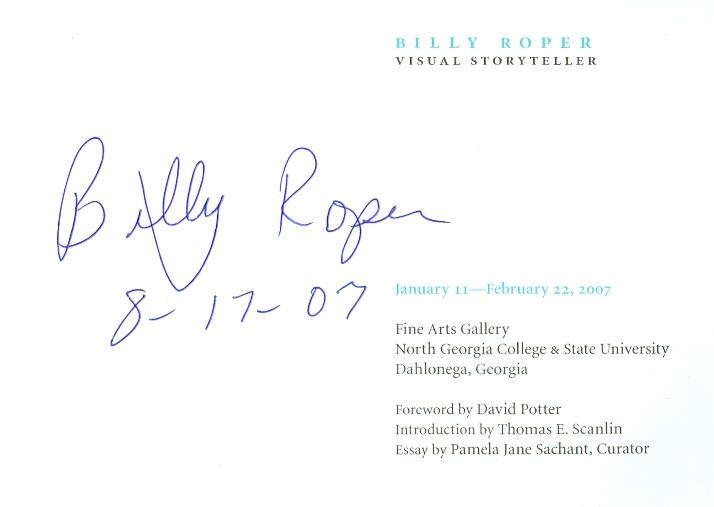 BILLY ROPER
VISUAL STORYTELLER
Billy Roper
8-17-07
January 11—February 22, 2007
Fine Arts Gallery
North Georgia College & State University
Dahlonega, Georgia
Foreword by David Potter
Introduction by Thomas E. Scanlin
Essay by Pamela Jane Sachant, Curator